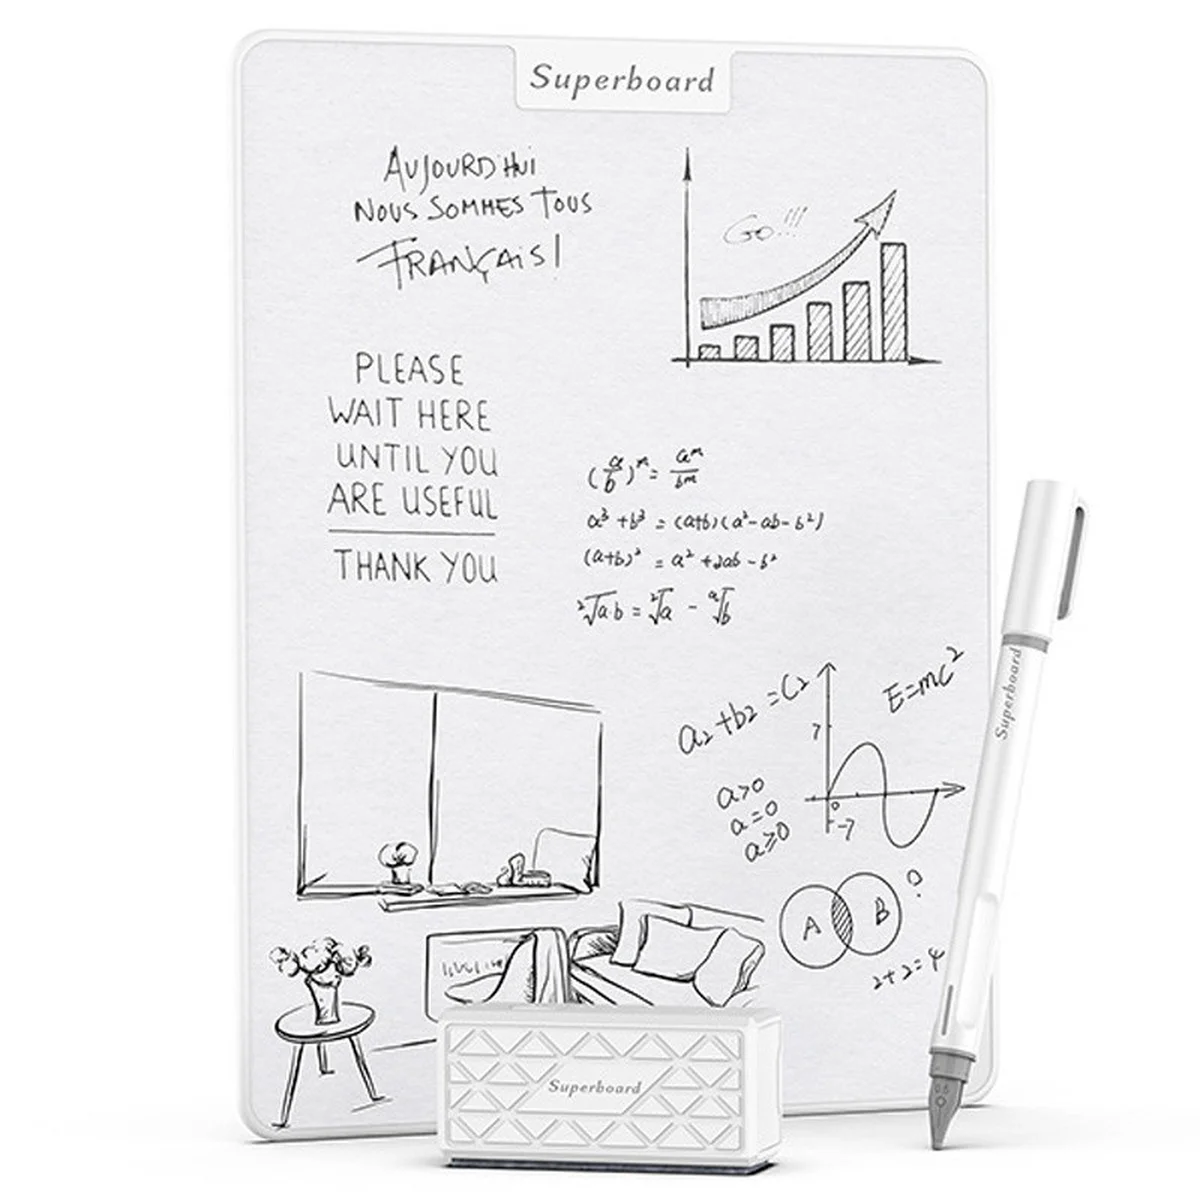 Superboard
AUJOURD'HUI
NOUS SOMMES TOUS
FRANÇAIS!
Go!!!
PLEASE
WAIT HERE
UNTIL YOU
ARE USEFUL
THANK YOU
(a/b)ᵐ = aᵐ/bᵐ
a³ + b³ = (a+b)(a² - ab - b²)
(a+b)² = a² + 2ab - b²
²√a·b = ²√a - ᵃ√b
a₂ + b₂ = C₂
E=mc²
7
0
-7
a>0
a=0
a≥0
A B ?
2+2=4
Superboard
Superboard